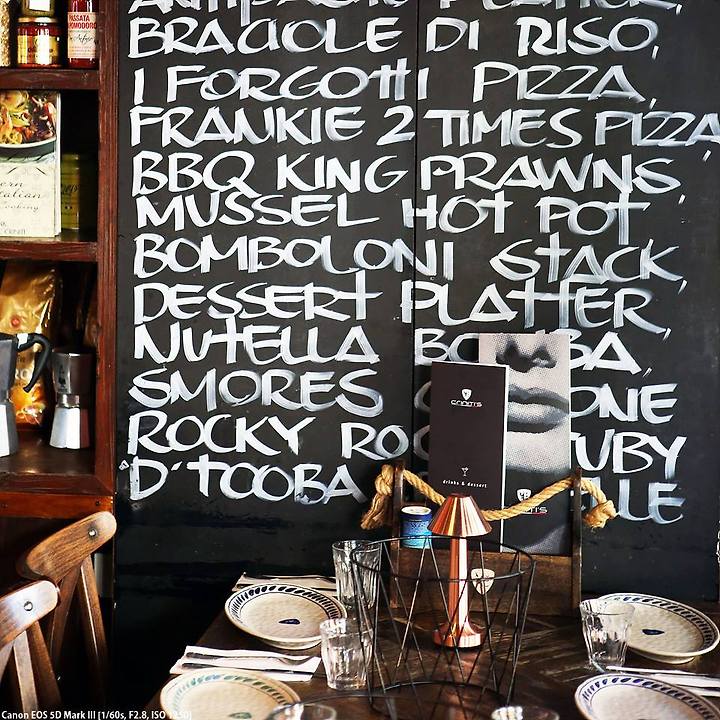 ANTIPASTO PLATTER,
BRACIOLE DI RISO,
I FORGOTTI PIZZA,
FRANKIE 2 TIMES PIZZA,
BBQ KING PRAWNS,
MUSSEL HOT POT
BOMBOLONI STACK,
DESSERT PLATTER,
NUTELLA BOMBA,
SMORES ONE
ROCKY RO UBY
'D'TOOBA LLE
PASSATA
POMODORO
Italian
drinks & dessert
Canon EOS 5D Mark III [1/60s, F2.8, ISO 1250]